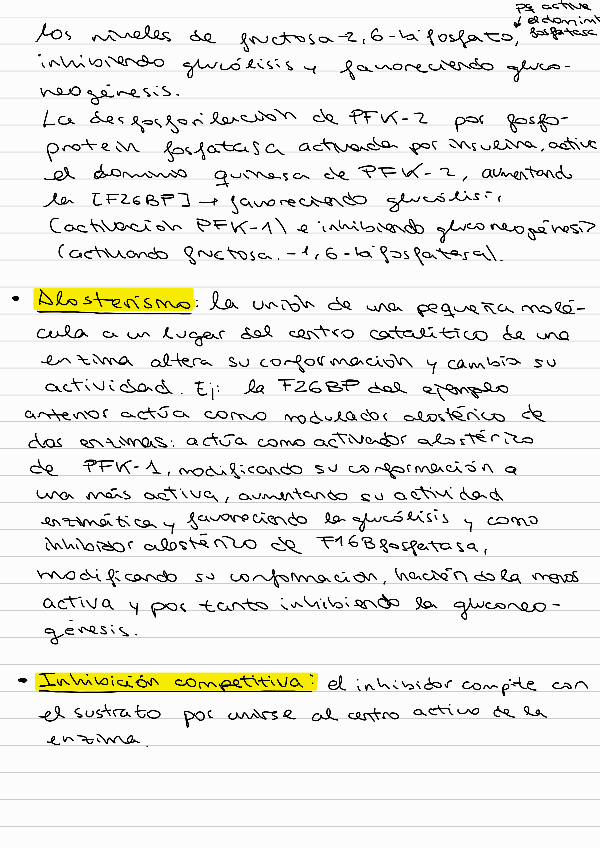 pq activa
↓ el dominio
fosfatasa
los niveles de fructosa-2,6-bifosfato,
inhibiendo glucólisis y favoreciendo gluco-
neogénesis.
La desfosforilación de PFK-2 por fosfo-
protein fosfatasa activada por insulina, activa
el dominio quinasa de PFK-2, aumentando
la [F26BP] → favoreciendo glucólisis
(activación PFK-1) e inhibiendo gluconeogénesis
(activando fructosa-1,6-bifosfatasa).
• Alosterismo: la unión de una pequeña molé-
cula a un lugar del centro catalítico de una
enzima altera su conformación y cambia su
actividad. Ej: la F26BP del ejemplo
anterior actúa como modulador alostérico de
dos enzimas: actúa como activador alostérico
de PFK-1, modificando su conformación a
una más activa, aumentando su actividad
enzimática y favoreciendo la glucólisis y como
inhibidor alostérico de F16Bfosfatasa,
modificando su conformación, haciéndola menos
activa y por tanto inhibiendo la gluconeo-
génesis.
• Inhibición competitiva: el inhibidor compite con
el sustrato por unirse al centro activo de la
enzima.